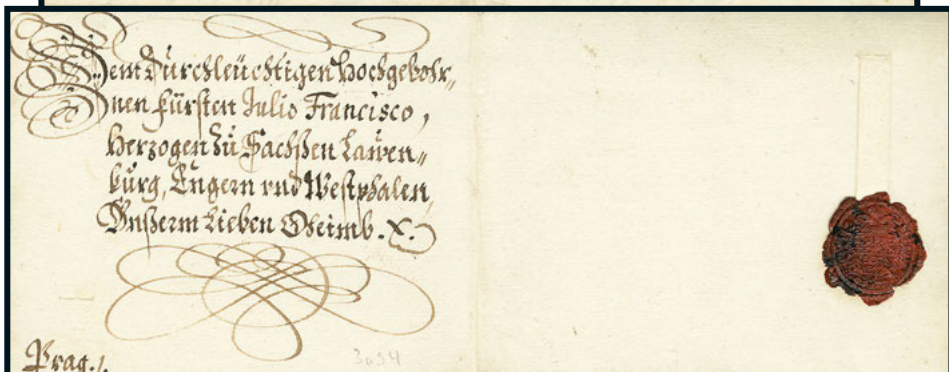 Dem Durchleüchtigen Hochgebohr„
nen Fürsten Julio Francisco,
Herzogen zu Sachßen Lawen„
burg, Engern vnd Westphalen,
Vnßerm Lieben Oheimb. X.
Prag./.
3054